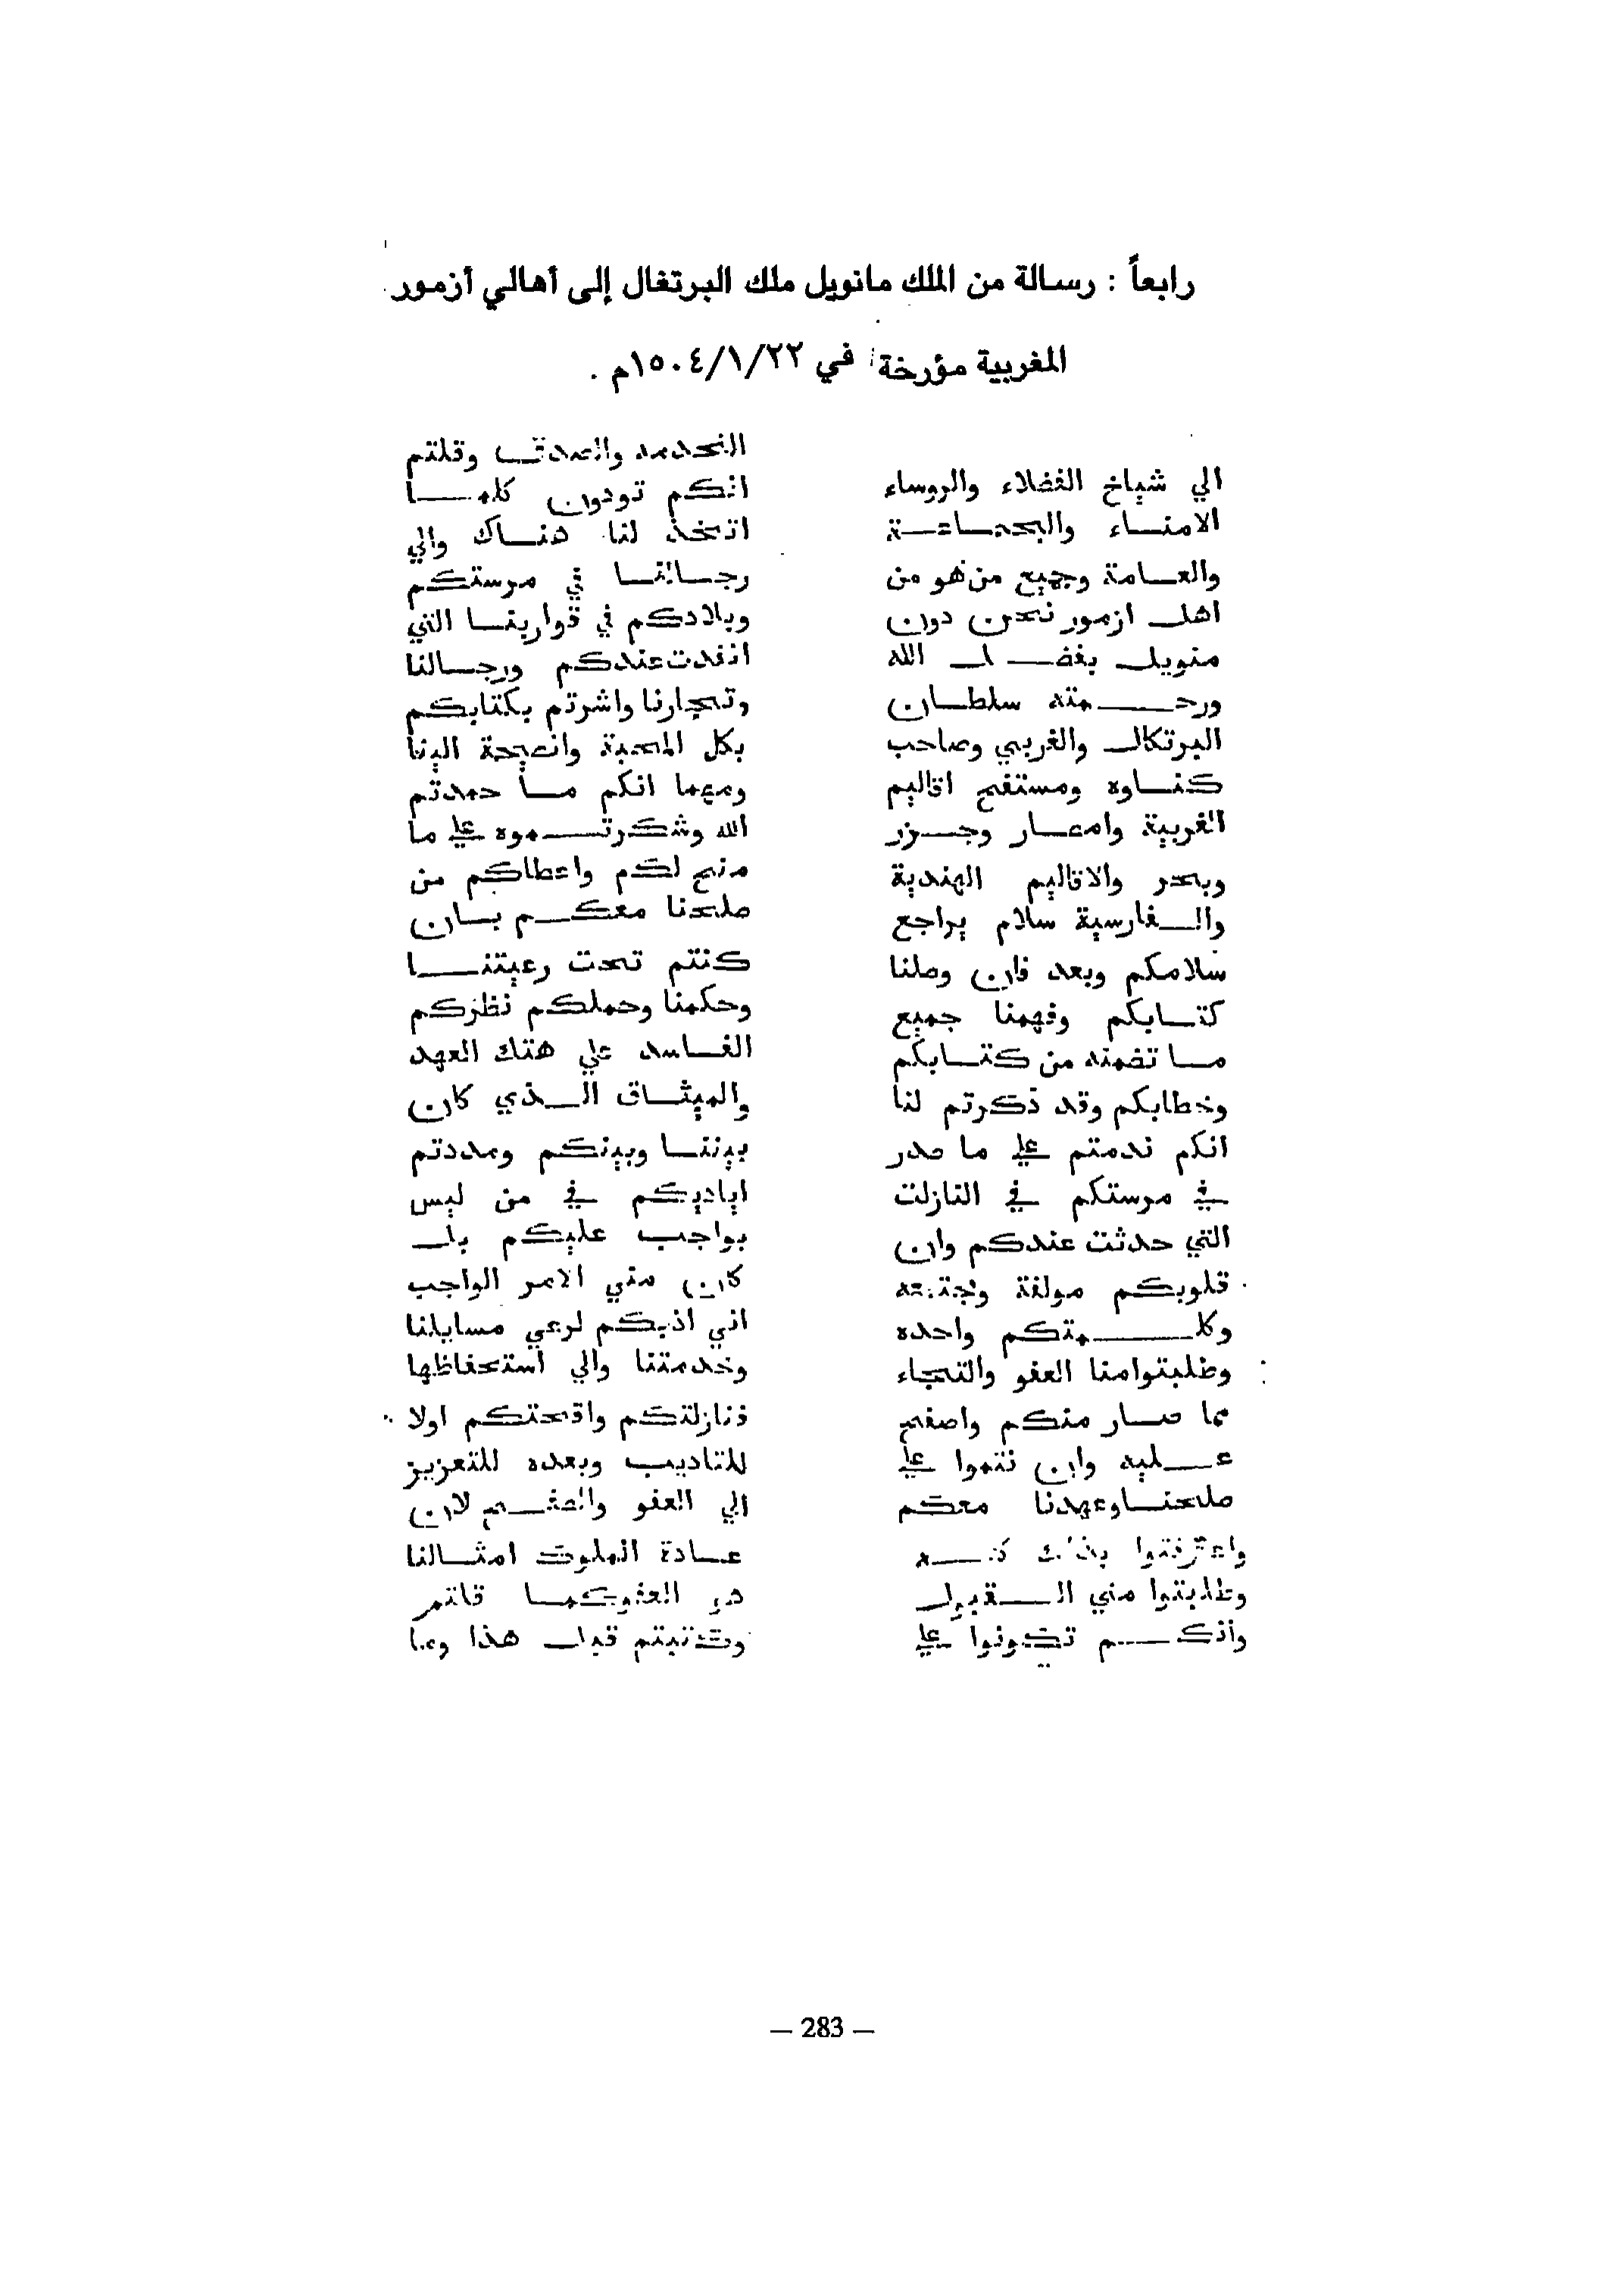 رابعاً : رسالة من الملك مانويل ملك البرتغال إلى أهالي أزمور
المغربية مؤرخة في ١٥٠٤/١/٢٢م .
الي شياخ الفضلاء والروساء
الامنـاء والجماعـة
والعـامة وجميع من هو من
اهل ازمور نحن دون
منويل بفضـل الله
ورحـمته سلطـان
البرتكال والغربي وصاحب
كنـاوه ومستفتح اقاليم
الغربية وامصـار وجـزر
وبحر والاقاليم الهندية
والـفارسية سلام يراجع
سلامكم وبعد فان وصلنا
كتـابكم وفهمنا جميع
مـا تضمنه من كتـابكم
وخطابكم وقد ذكرتم لنا
انكم ندمتم علي ما صدر
في مرستكم في النازلت
التي حدثت عندكم وان
قلوبكم مولفة
وكلـمتكم واحده
وطلبتوا منا العفو والتجاء
مما صـار منكم واصفح
عـليه وان نتموا علي
صلحنـا وعهدنا معكم
واعترفتوا
وطلبتوا مني الـقبول
وانكـم تكونوا علي
والصدق وقلتم
انكم تودون كلمـا
اتخذ لنا هنـاك والي
رجـالنـا في مرستكم
وبلادكم في قواربنـا التي
انفدت عندكم ورجـالنا
وتجارنا واشرتم بكتابكم
بكل المحبة وانصيحة الينا
ومهما انكم مـا حمدتم
الله وشكرتـموه علي ما
منح لكم واعطاكم من
صلحنا معكـم بـان
كنتم تحت رعيتنـا
وحكمنا وحملكم نظركم
الفـاسد علي هتك العهد
والميثـاق الـذي كان
بيننـا وبينكم ومددتم
اياديكم في من ليس
بواجب عليكم بل
كان مني الامر الواجب
اني لرعي مسايلنا
وخدمتنا والي استحفاظها
فنازلتكم اولا
للتاديب وبعده للتعزيز
الي العفو والصفـح لان
عـادة الملوك امثـالنا
هو العفو كمـا قلتم
وكتبتم قبل هذا
— 283 —